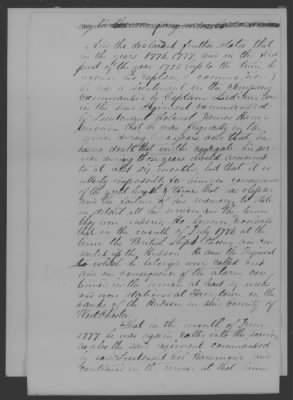 And the declarant further states that
in the years 1776, 1777, and in the first
part of the year 1778 up to the time he
received his captain's commission,
he was a Lieutenant in the company
commanded by Captain
in the same regiment commanded
by Lieutenant Colonel James Ham-
monds that he was frequently in the
service during those years and that he
has no doubt that in the aggregate his ser-
vice during those years should amount
to at least six months, but that it is
utterly impossible for him in consequence
of the great length of time that has elapsed
and the failure of his memory to state
in detail all the services and the times
they were rendered. He however
that in the month of July 1776 at the
time the British ships
in the Hudson River the Regiment
to which he belonged were called out
and in consequence of the alarm con-
tinued in the service at least six weeks
and were stationed at Tarrytown on the
banks of the Hudson in the county of
Westchester.
That in the month of June
1777 he was again called into the service
in the same regiment commanded
by said Lieutenant Col Hammond and
continued in the service at that time